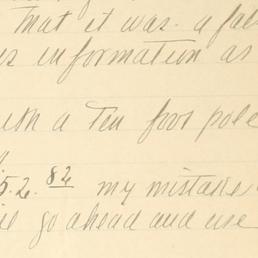 that it was a fal
s information as
th a ten foot pole
5.2.82 my mistake
go ahead and use